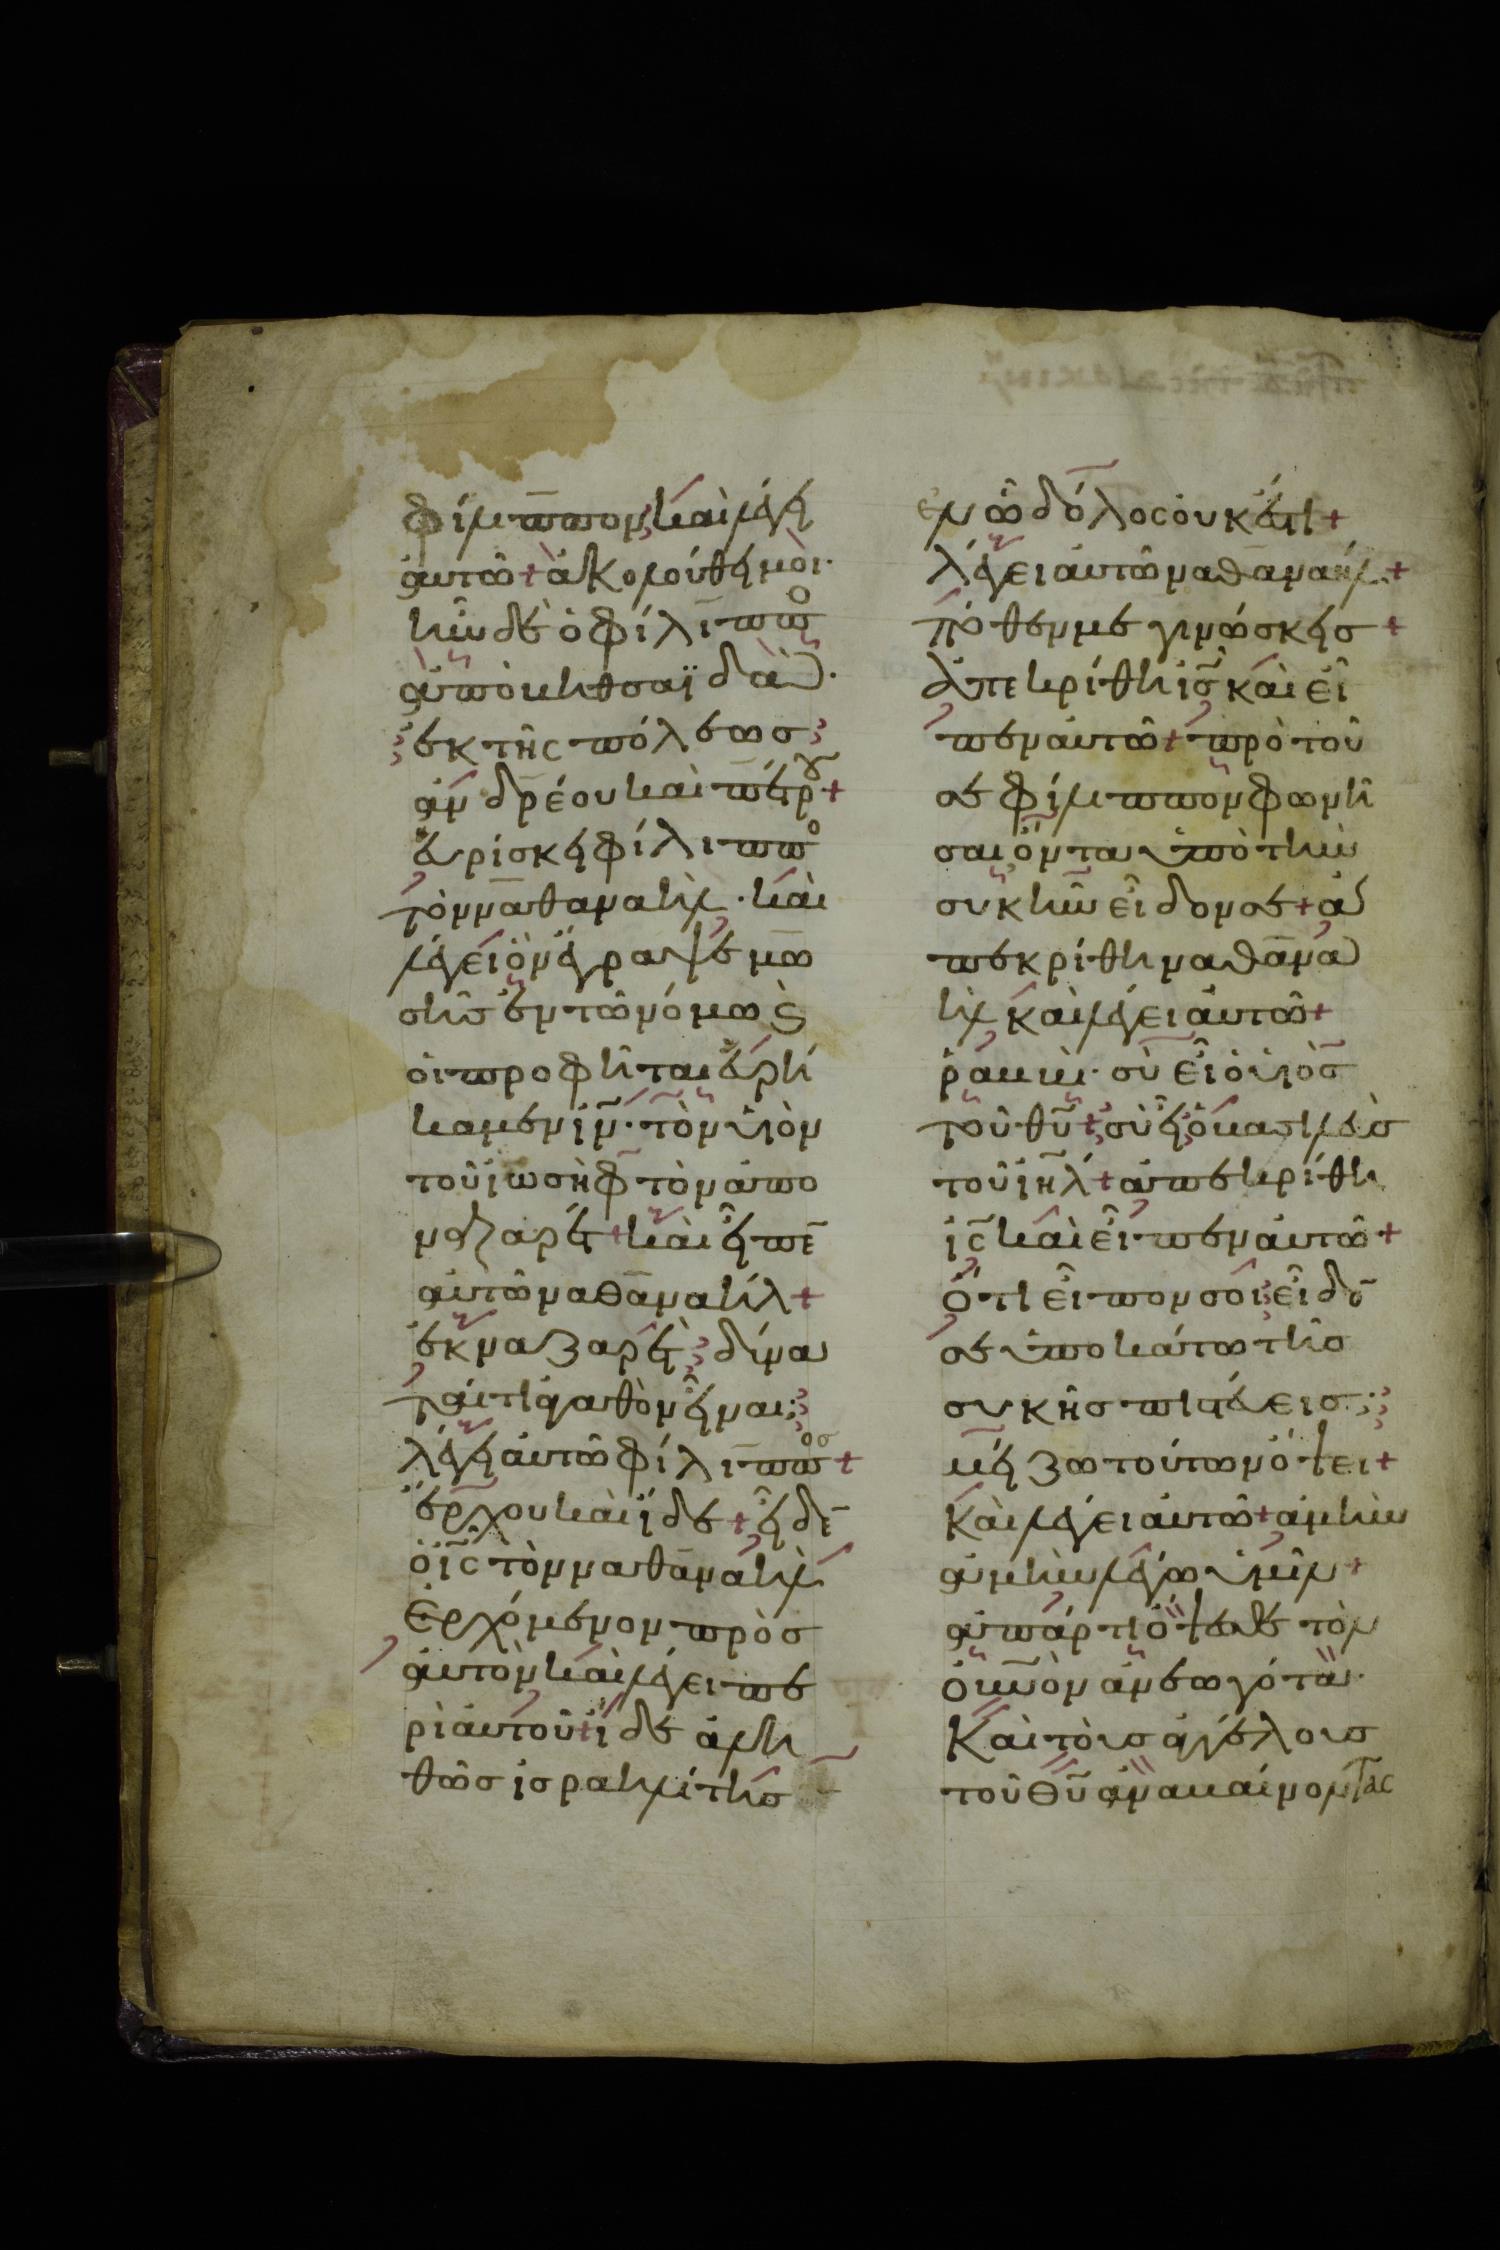 φίλιππον καὶ λέγει
αὐτῶ + ἀκολούθει μοι·
ἦν δὲ ὁ φίλιππο
ἀπὸ βηθσαϊδὰ·
ἐκ τῆς πόλεως
ἀνδρέου καὶ πέτρου +
εὑρίσκει φίλιππο
τὸν ναθαναὴλ· καὶ
λέγει ὃν ἔγραψε μω
σῆσ ἐν τῶ νόμω ϛ
οἱ προφῆται εὑρή
καμεν ἰν̅· τὸν υἱὸν
τοῦ ἰωσὴφ τὸν ἀπο
ναζαρέτ + καὶ εἶπε̅
αὐτῶ ναθαναήλ +
ἐκ ναζαρὲτ δύνα
ταί τι ἀγαθὸν εἶναι;
λέγει αὐτῶ φίλιπποσ +
ἔρχου καὶ ἴδε + εἶδε̅
ὁ ἰς̅ τὸν ναθαναὴλ
ἐρχόμενον πρὸσ
αὐτὸν καὶ λέγει πε
ρὶ αὐτοῦ + ἴδε ἀλη
θῶσ ἰσραηλίτησ
ἐν ὧ δόλος οὐκ ἔστι +
λέγει αὐτῶ ναθαναήλ +
πόθεν με γινώσκεισ +
ἀπεκρίθη ἰσ̅ καὶ εἶ
πεν αὐτῶ + πρὸ τοῦ
σε φίλιππον φωνῆ
σαι ὄντα ὑπὸ τὴν
συκῆν εἶδον σε + ἀ
πεκρίθη ναθανα
ὴλ καὶ λέγει αὐτῶ +
ῥαββί· σὺ εἶ ὁ υἱὸσ
τοῦ θυ̅ + σὺ εἶ ὁ βασιλεὺσ
τοῦ ἰηλ̅ + ἀπεκρίθη
ἰς̅ καὶ εἶπεν αὐτῶ +
ὅτι εἶπον σοι εἶδο̅
σε ὑποκάτω τῆσ
συκῆσ πιστεύεισ;
μείζω τούτων ὄψει +
καὶ λέγει αὐτῶ + ἀμὴν
ἀμὴν λέγω ὑμῖν +
ἀπάρτι ὄψεσθε τὸν
οὐνὸν ἀνεωγότα·
καὶ τοὺσ ἀγγέλουσ
τοῦ θυ̅ ἀναβαίνοντας